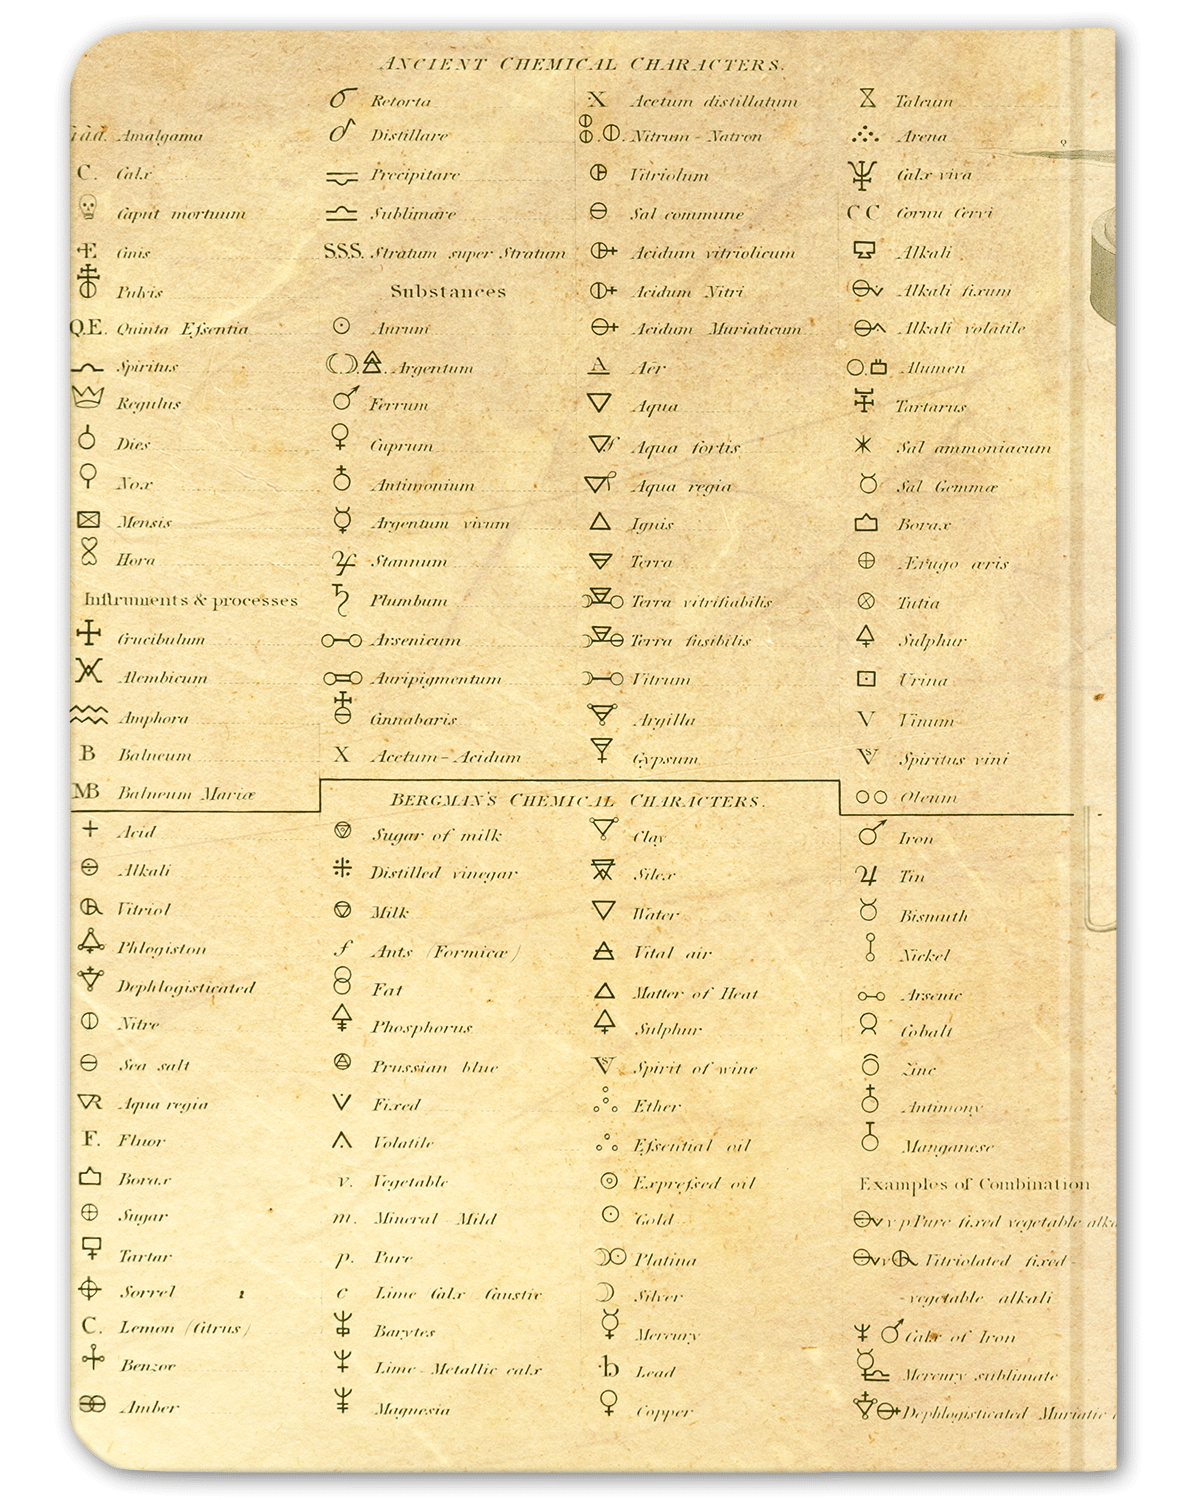 ANCIENT CHEMICAL CHARACTERS.
ā.ā.ā. Amalgama
C. Calx
Caput mortuum
Cinis
Pulvis
Q.E. Quinta Eſsentia
Spiritus
Regulus
Dies
Nox
Mensis
Hora
Inſtruments & processes
Crucibulum
Alembicum
Amphora
B Balneum
MB Balneum Mariæ
Retorta
Distillare
Precipitare
Sublimare
SSS. Stratum super Stratum
Substances
Aurum
Argentum
Ferrum
Cuprum
Antimonium
Argentum vivum
Stannum
Plumbum
Arsenicum
Auripigmentum
Cinnabaris
X Acetum-Acidum
X Acetum distillatum
Nitrum - Natron
Vitriolum
Sal commune
Acidum vitriolicum
Acidum Nitri
Acidum Muriaticum
A Aër
Aqua
Aqua fortis
Aqua regia
Ignis
Terra
Terra vitrifiabilis
Terra fusibilis
Vitrum
Argilla
Gypsum
Talcum
Arena
Calx viva
CC Cornu Cervi
Alkali
Alkali fixum
Alkali volatile
Alumen
Tartarus
Sal ammoniacum
Sal Gemmæ
Borax
Ærugo æris
Tutia
Sulphur
Urina
V Vinum
Spiritus vini
Oleum
BERGMAN'S CHEMICAL CHARACTERS.
Acid
Alkali
Vitriol
Phlogiston
Dephlogisticated
Nitre
Sea salt
Aqua regia
F. Fluor
Borax
Sugar
Tartar
Sorrel
C. Lemon (Citrus)
Benzoe
Amber
Sugar of milk
Distilled vinegar
Milk
f Ants (Formicæ)
Fat
Phosphorus
Prussian blue
Fixed
Volatile
v. Vegetable
m. Mineral - Mild
p. Pure
c Lime Calx Caustic
Barytes
Lime - Metallic calx
Magnesia
Clay
Silex
Water
Vital air
Matter of Heat
Sulphur
Spirit of wine
Ether
Eſsential oil
Expreſsed oil
Gold
Platina
Silver
Mercury
Lead
Copper
Iron
Tin
Bismuth
Nickel
Arsenic
Cobalt
Zinc
Antimony
Manganese
Examples of Combination
v p Pure fixed vegetable alka
v Vitriolated fixed-
-vegetable alkali
Calx of Iron
Mercury sublimate
Dephlogisticated Muriatic